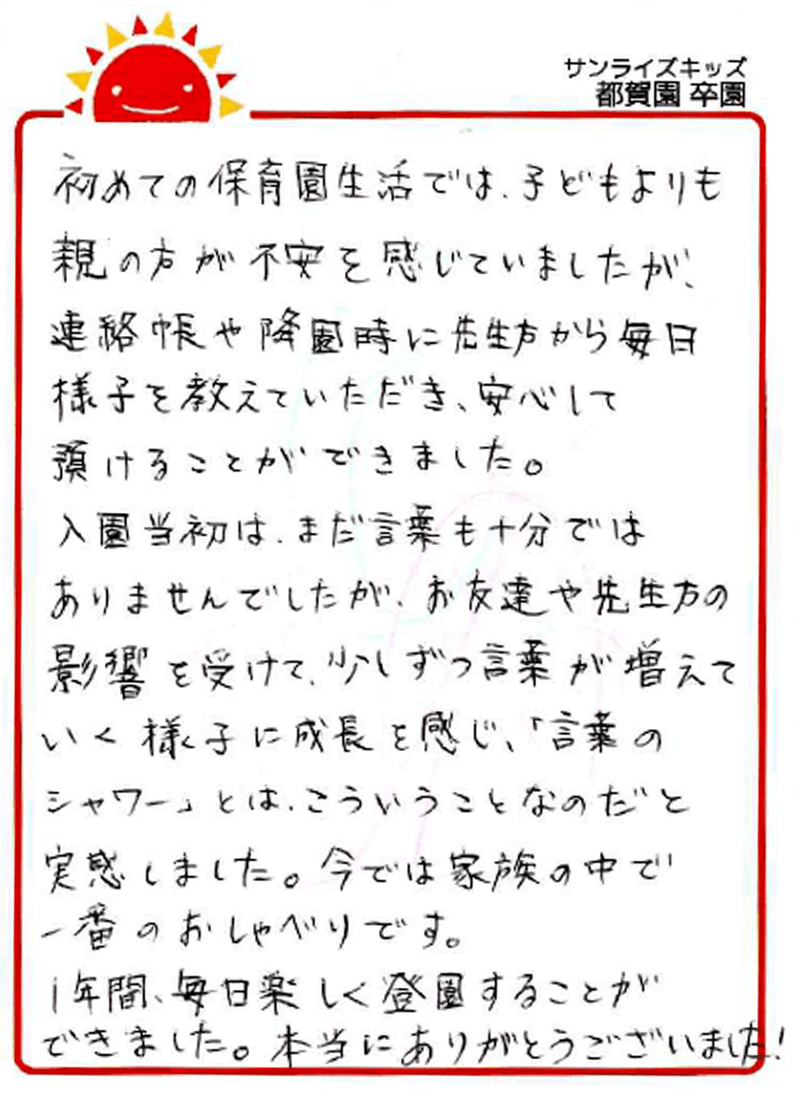 サンライズキッズ
都賀園 卒園
初めての保育園生活では、子どもよりも
親の方が不安を感じていましたが、
連絡帳や降園時に先生方から毎日
様子を教えていただき、安心して
預けることができました。
入園当初は、まだ言葉も十分では
ありませんでしたが、お友達や先生方の
影響を受けて、少しずつ言葉が増えて
いく様子に成長を感じ、「言葉の
シャワー」とは、こういうことなのだと
実感しました。今では家族の中で
一番のおしゃべりです。
1年間、毎日楽しく登園することが
できました。本当にありがとうございました!